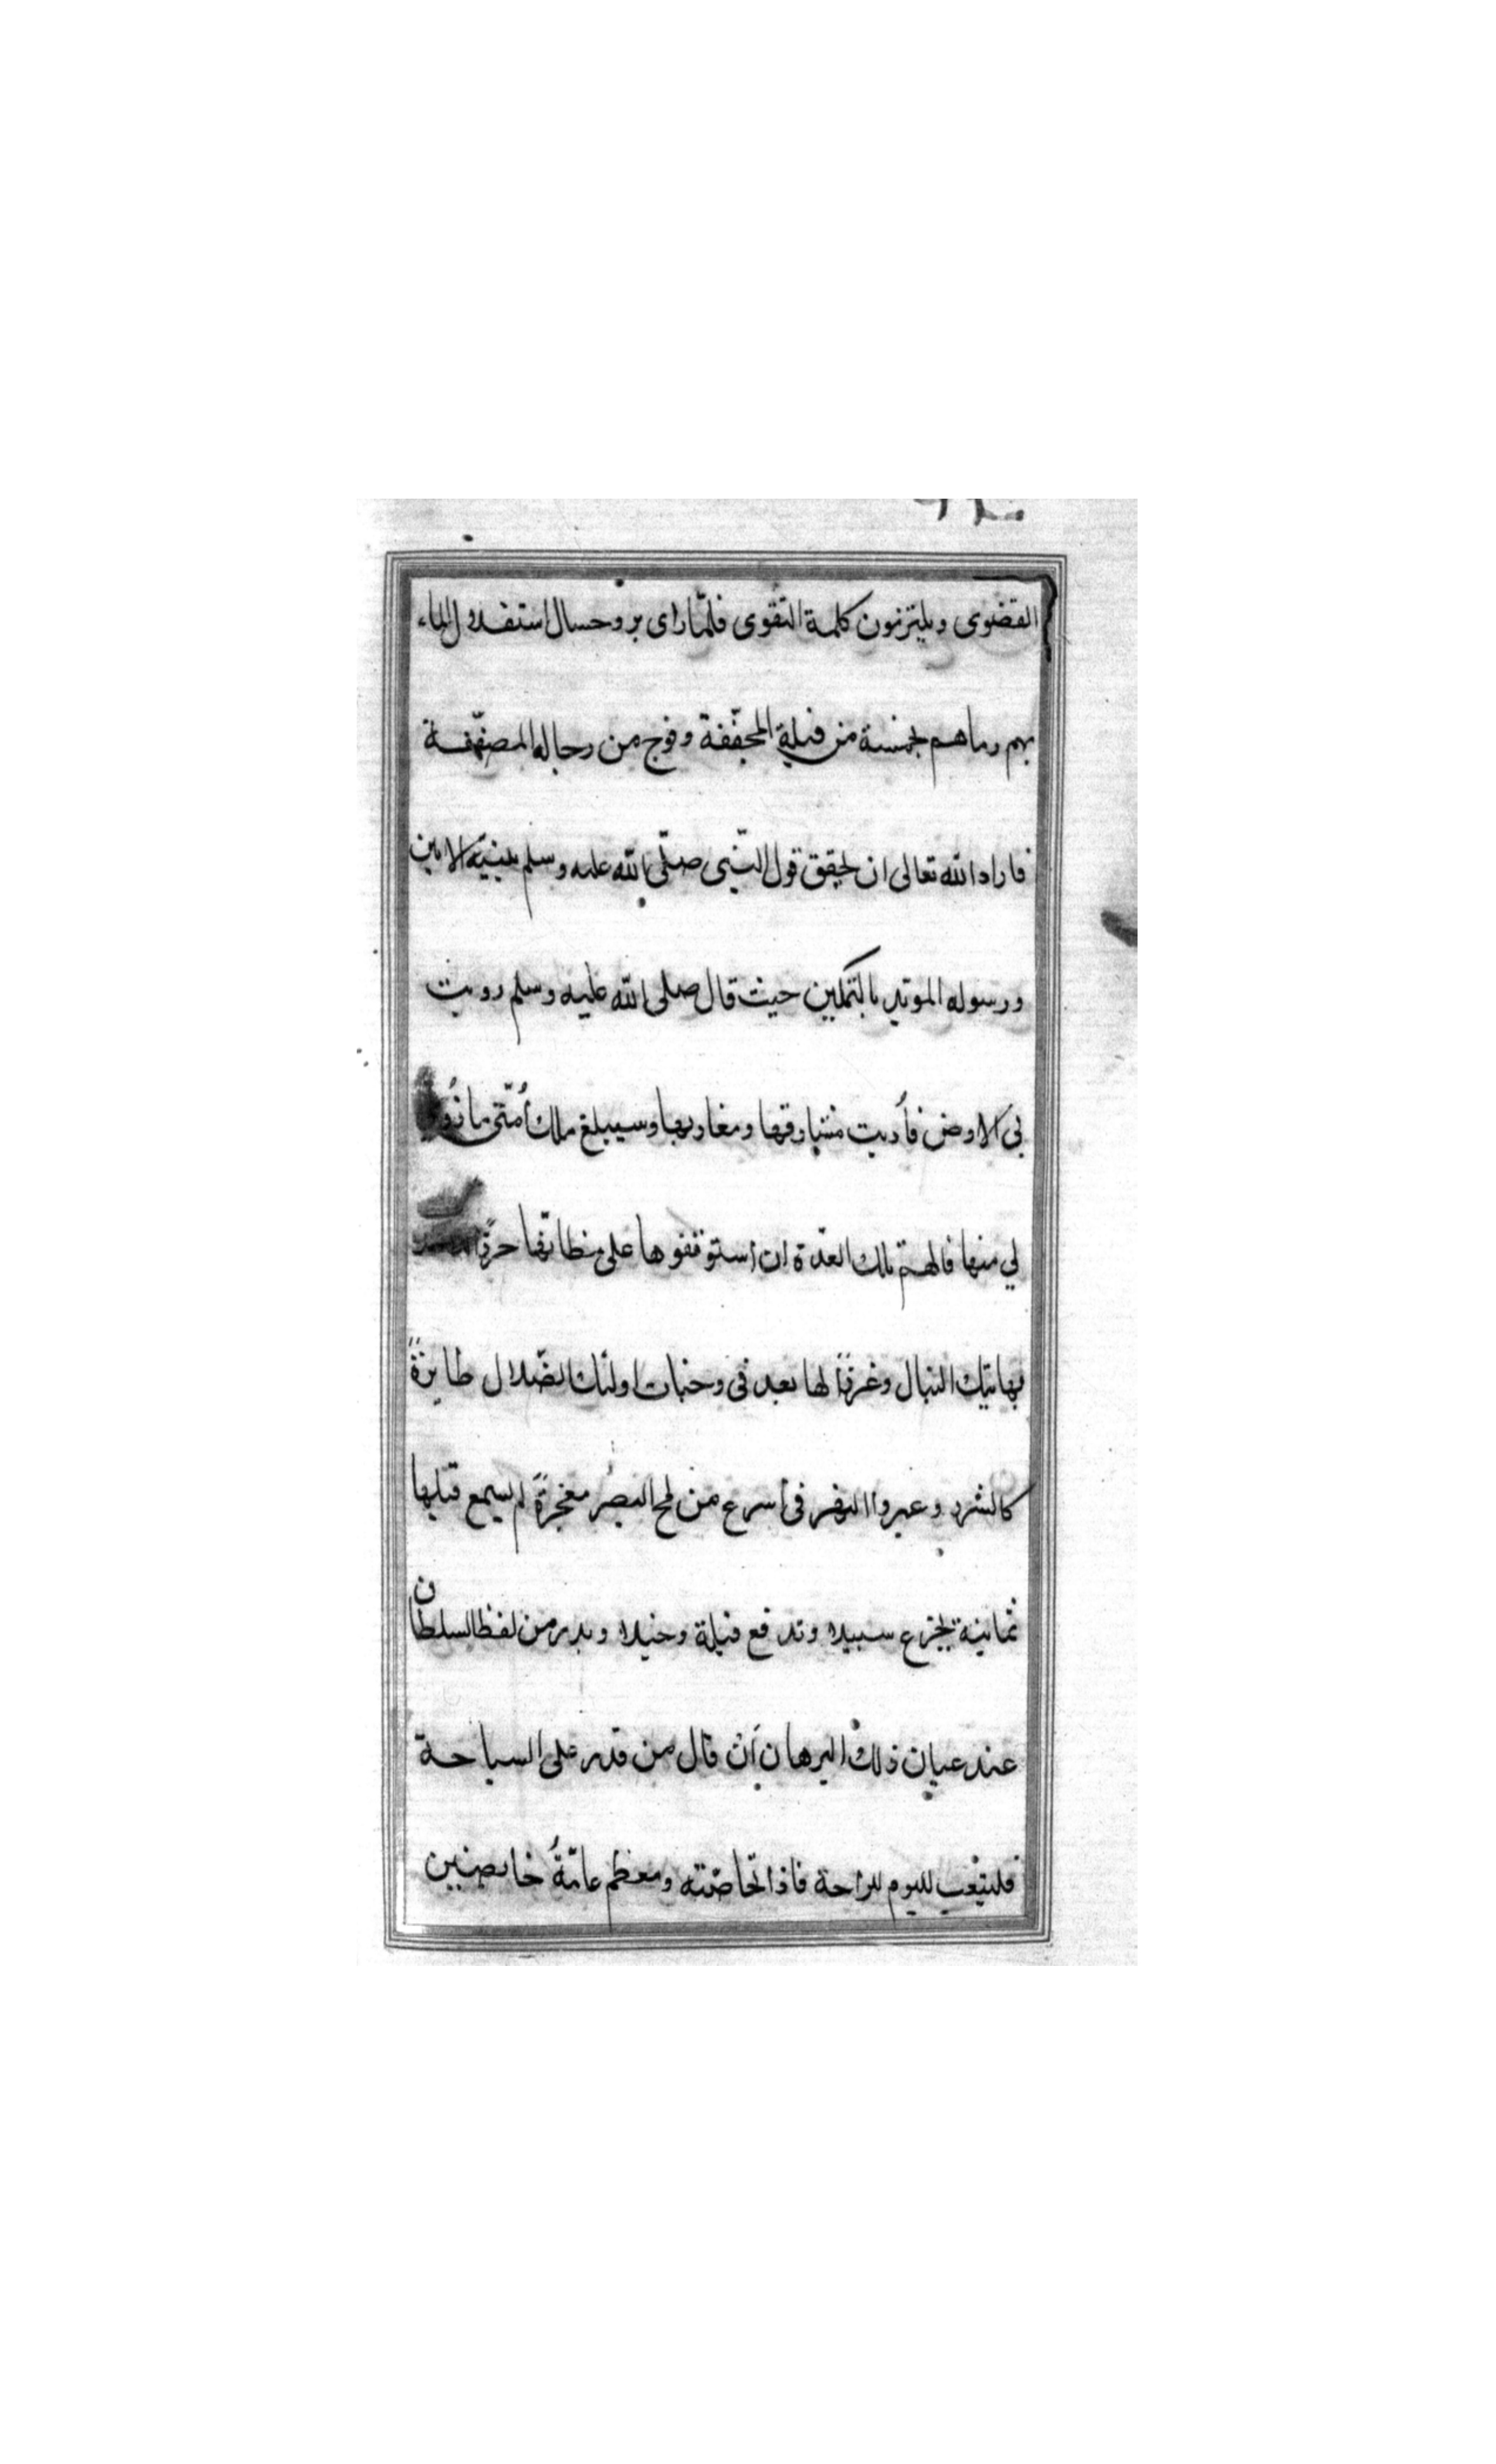 القضوى ويلتزمون كلمة التقوى فلمّا راى بروجسال استقلال الماء
بهم رماهم بخمسة من فيلة المجفّفة وفوج من رجاله المصفّفة
فاراد الله تعالى ان يحقق قول النّبى صلّى الله عليه وسلم نبيّه الامين
ورسوله المويّد بالتمكين حيث قال صلى الله عليه وسلم رويت
لى الارض فأريت مشارقها ومغاربها وسيبلغ ملك أمّتى ما زُوى
لي منها فالهم تلك العدّة ان استوقفوها على منطاتها حرقًا
بهاتيك النبال وغرزًا لها بعد فى وجنات اولئك الضّلال طايرةً
كالشرر وعبروا النهر فى أسرع من لمح البصر معجزةً لم يسمع قبلها
ثمانية يجزع سبيلا وتدفع فيلة وخيلا وبدر من لفظ السلطان
عند عيان ذلك البرهان أن قال من قدر على السباحة
فليتعب لليوم للراحة فاذا بخاصّته ومعظم عامّةُ خايضين